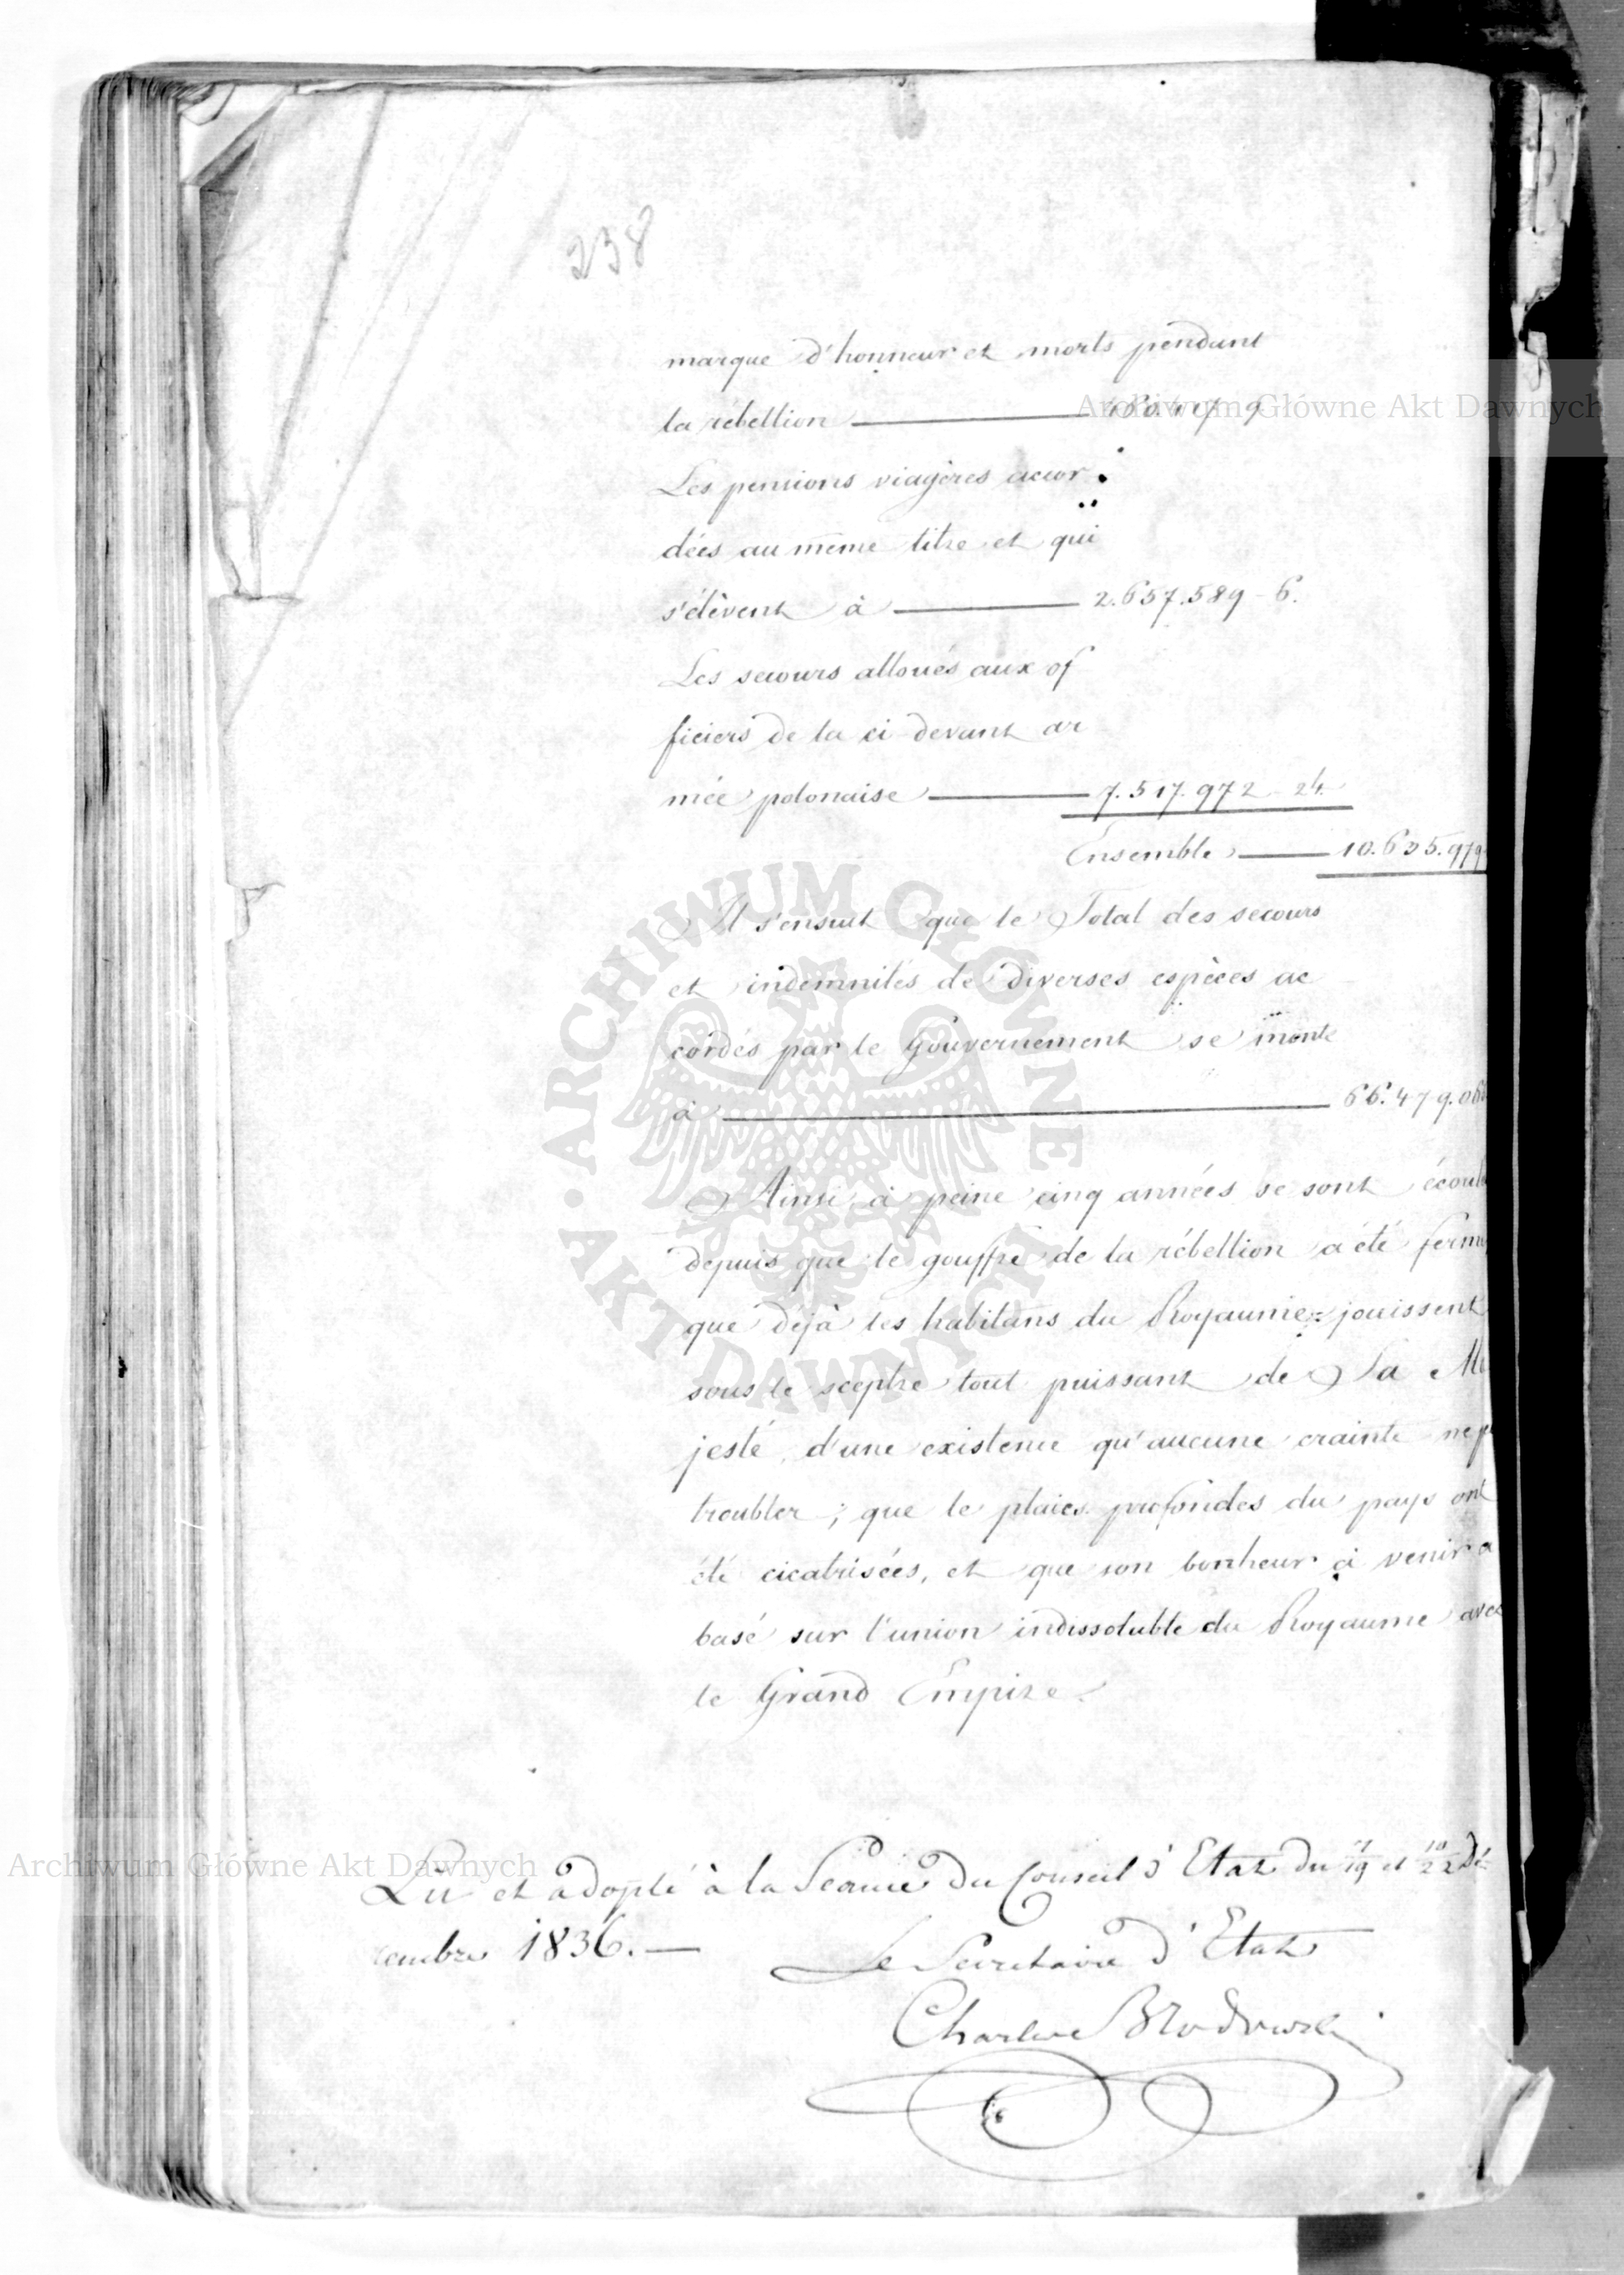 238
marque d'honneur et morts pendant
la rébellion — 460.417 9
Les pensions viagères accor
dées au même titre et qui
s'élèvent à — 2.657.589 - 6.
Les secours alloués aux of
ficiers de la ci devant ar
mée polonaise — 7.517.972 - 24.
Ensemble — 10.635.979
Il s'ensuit que le Total des secours
et indemnités de diverses espèces ac
cordés par le Gouvernement se monte
à — 66.479.06
Ainsi à peine cinq années se sont écoul
depuis que le gouffre de la rébellion a été ferm
que déjà les habitans du Royaume jouissent
sous le sceptre tout puissant de Sa Ma
jesté, d'une existence qu'aucune crainte ne p
troubler ; que le plaies profondes du pays ont
été cicatrisées, et que son bonheur à venir a
basé sur l'union indissoluble du Royaume avec
le Grand Empire.
Lu et adopté à la Séance du Conseil d'Etat du 7/19 et 10/22 Dé
cembre 1836. —
Le Secrétaire d'Etat
Charles Brodowski
Archiwum Główne Akt Dawnych
Archiwum Główne Akt Dawnych
ARCHIWUM GŁÓWNE AKT DAWNYCH